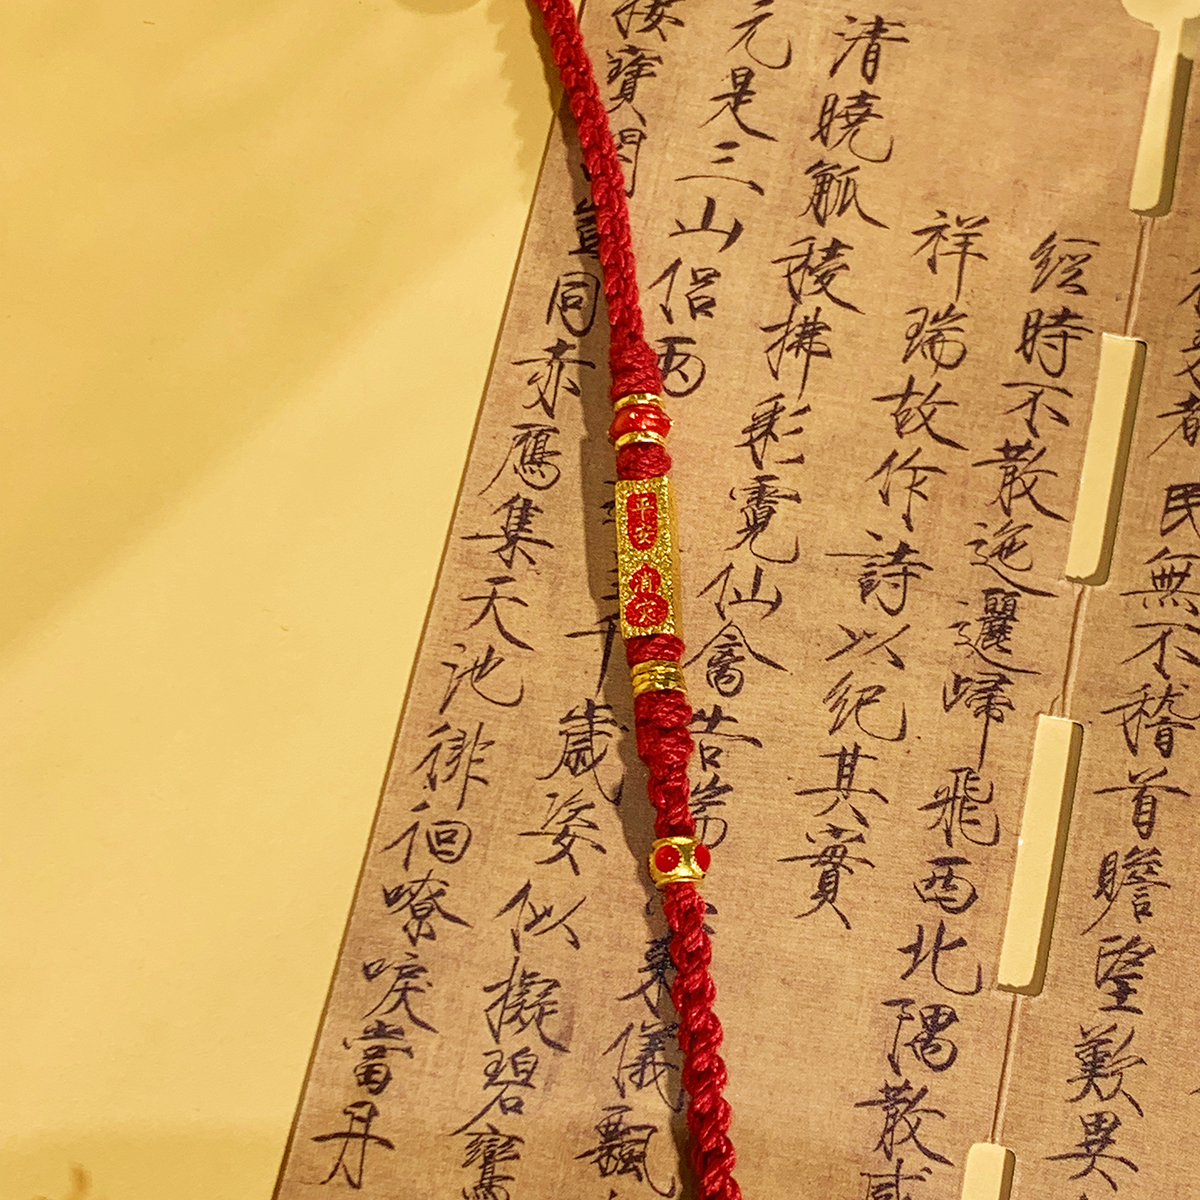 都民無不稽首瞻望歎異
經時不散迤邐歸飛西北隅散感
祥瑞故作詩以紀其實
清曉觚稜拂彩霓仙禽告來儀飄
元是三山侶兩千歲姿似擬碧鸞
寶閣豈同赤鴈集天池徘徊嘹唳當丹
平安